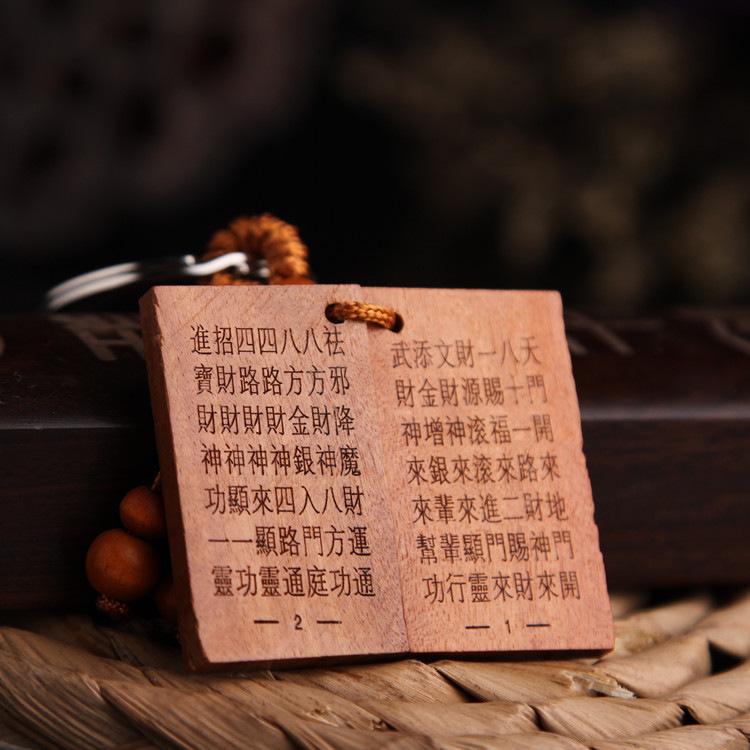 天門開來地門開
八十一路財神來
一賜福來二賜財
財源滚滚進門來
文財神來來顯靈
添金增銀輩輩行
武財神來來幫功
— 1 —
祛邪降魔財運通
八方財神八方功
八方金銀入門庭
四路財神四路通
四路財神來顯靈
招財財神顯一功
進寶財神功一靈
— 2 —